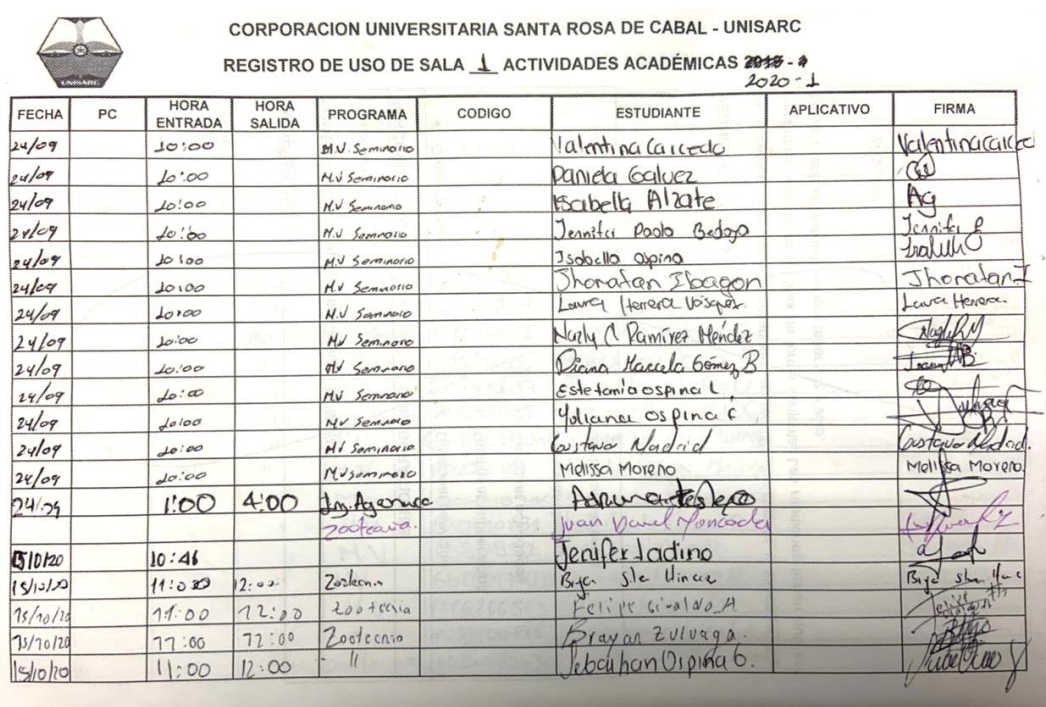 CORPORACION UNIVERSITARIA SANTA ROSA DE CABAL - UNISARC
UNISARC
REGISTRO DE USO DE SALA 1 ACTIVIDADES ACADÉMICAS
2020-1
FECHA PC HORA ENTRADA HORA SALIDA PROGRAMA CODIGO ESTUDIANTE APLICATIVO FIRMA
24/09 10:00 M.V. Seminario Valentina Caicedo Valentina Caiced
24/09 10:00 M.V Seminario Daniela Galvez
24/09 10:00 M.V Seminario Isabella Alzate Ag
24/09 10:00 M.V Seminario Jennifer Paola Bedoya Jennifer
24/09 10:00 MV Seminario Isabella Ospina
24/09 10:00 M.V Seminario Jhonatan Ibagon Jhonatan I
24/09 10:00 M.V Seminario Laura Herrera Vásquez Laura Herrera.
24/09 10:00 MV Seminario Nazly C Ramírez Méndez
24/09 10:00 MV Seminario Diana Marcela Gómez B
24/09 10:00 MV Seminario Estefania ospina L
24/09 10:00 MV Seminario Yuliana Ospina C.
24/09 10:00 MV Seminario Gustavo Madrid Gustavo Madrid.
24/09 10:00 MV seminario Melissa Moreno Melissa Moreno.
24/09 1:00 4:00
Zootecnia. Juan David Moncada
15/10/20 10:46 Jenifer Ladino
15/10/20 12:00 Zootecnia
15/10/20 11:00 12:00 Zootecnia Felipe Giraldo A
15/10/20 11:00 12:00 Zootecnia Brayan Zuluaga.
15/10/20 11:00 12:00 " Sebasthan Ospina G.